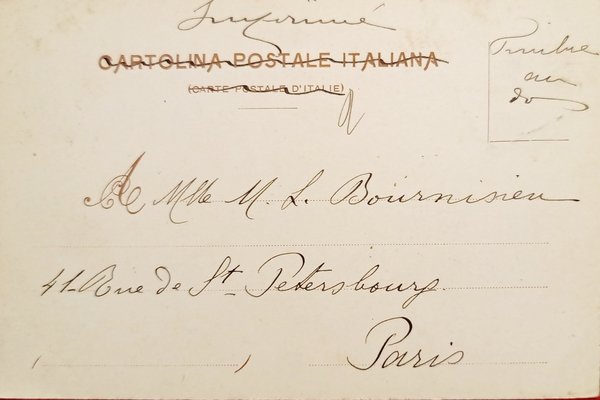 Imprimé
CARTOLINA POSTALE ITALIANA
(CARTE POSTALE D'ITALIE)
Timbre
au
do
A Mlle M. L. Bournisien
41 - Rue de St. Petersbourg
Paris